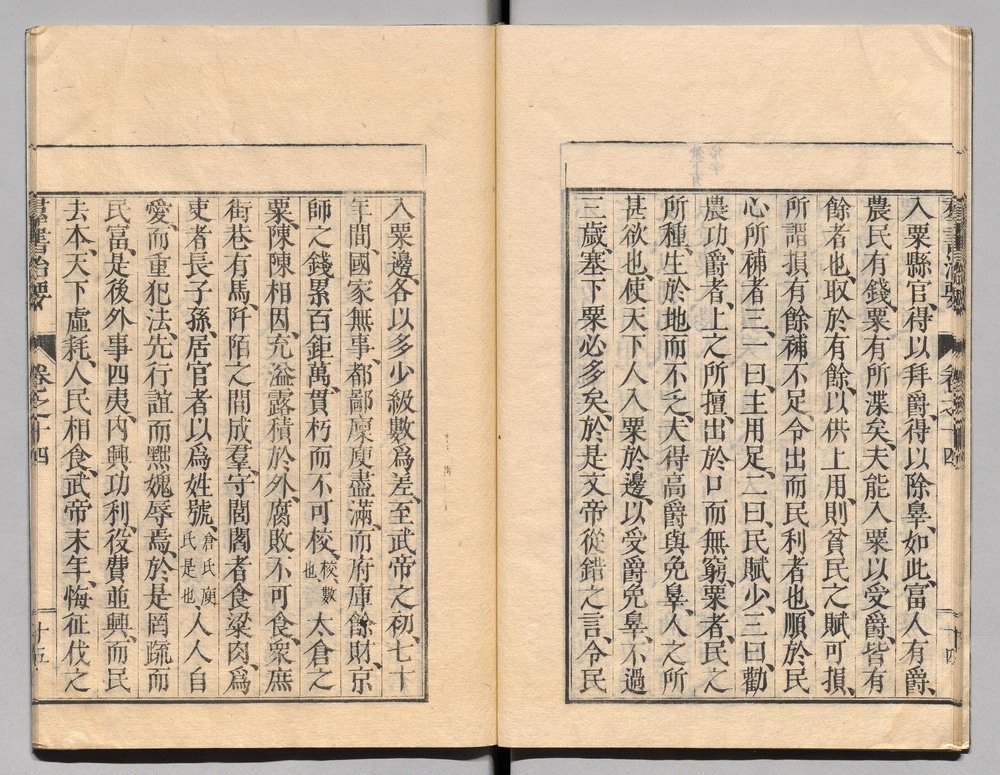 入粟縣官、得以拜爵、得以除辠、如此、富人有爵、
農民有錢、粟有所渫矣、夫能入粟以受爵、皆有
餘者也、取於有餘、以供上用、則貧民之賦可損、
所謂損有餘補不足、令出而民利者也、順於民
心、所補者三、一曰、主用足、二曰、民賦少、三曰、勸
農功、爵者、上之所擅、出於口而無窮、粟者、民之
所種、生於地而不乏、夫得高爵與免辠、人之所
甚欲也、使天下人入粟於邊、以受爵免辠、不過
三歲、塞下粟必多矣、於是文帝從錯之言、令民
羣書治要
卷之十四
十四
入粟邊、各以多少級數爲差、至武帝之初、七十
年間、國家無事、都鄙廩庾盡滿、而府庫餘財、京
師之錢累百鉅萬、貫朽而不可校、校、數也、太倉之
粟、陳陳相因、充溢露積於外、腐敗不可食、衆庶
街巷有馬、阡陌之間成羣、守閭閻者食粱肉、爲
吏者長子孫、居官者以爲姓號、倉氏庾氏是也、人人自
愛、而重犯法、先行誼而黜媿辱焉、於是罔疏而
民富、是後外事四夷、內興功利、役費並興、而民
去本、天下虛耗、人民相食、武帝末年、悔征伐之
羣書治要
卷之十四
十五